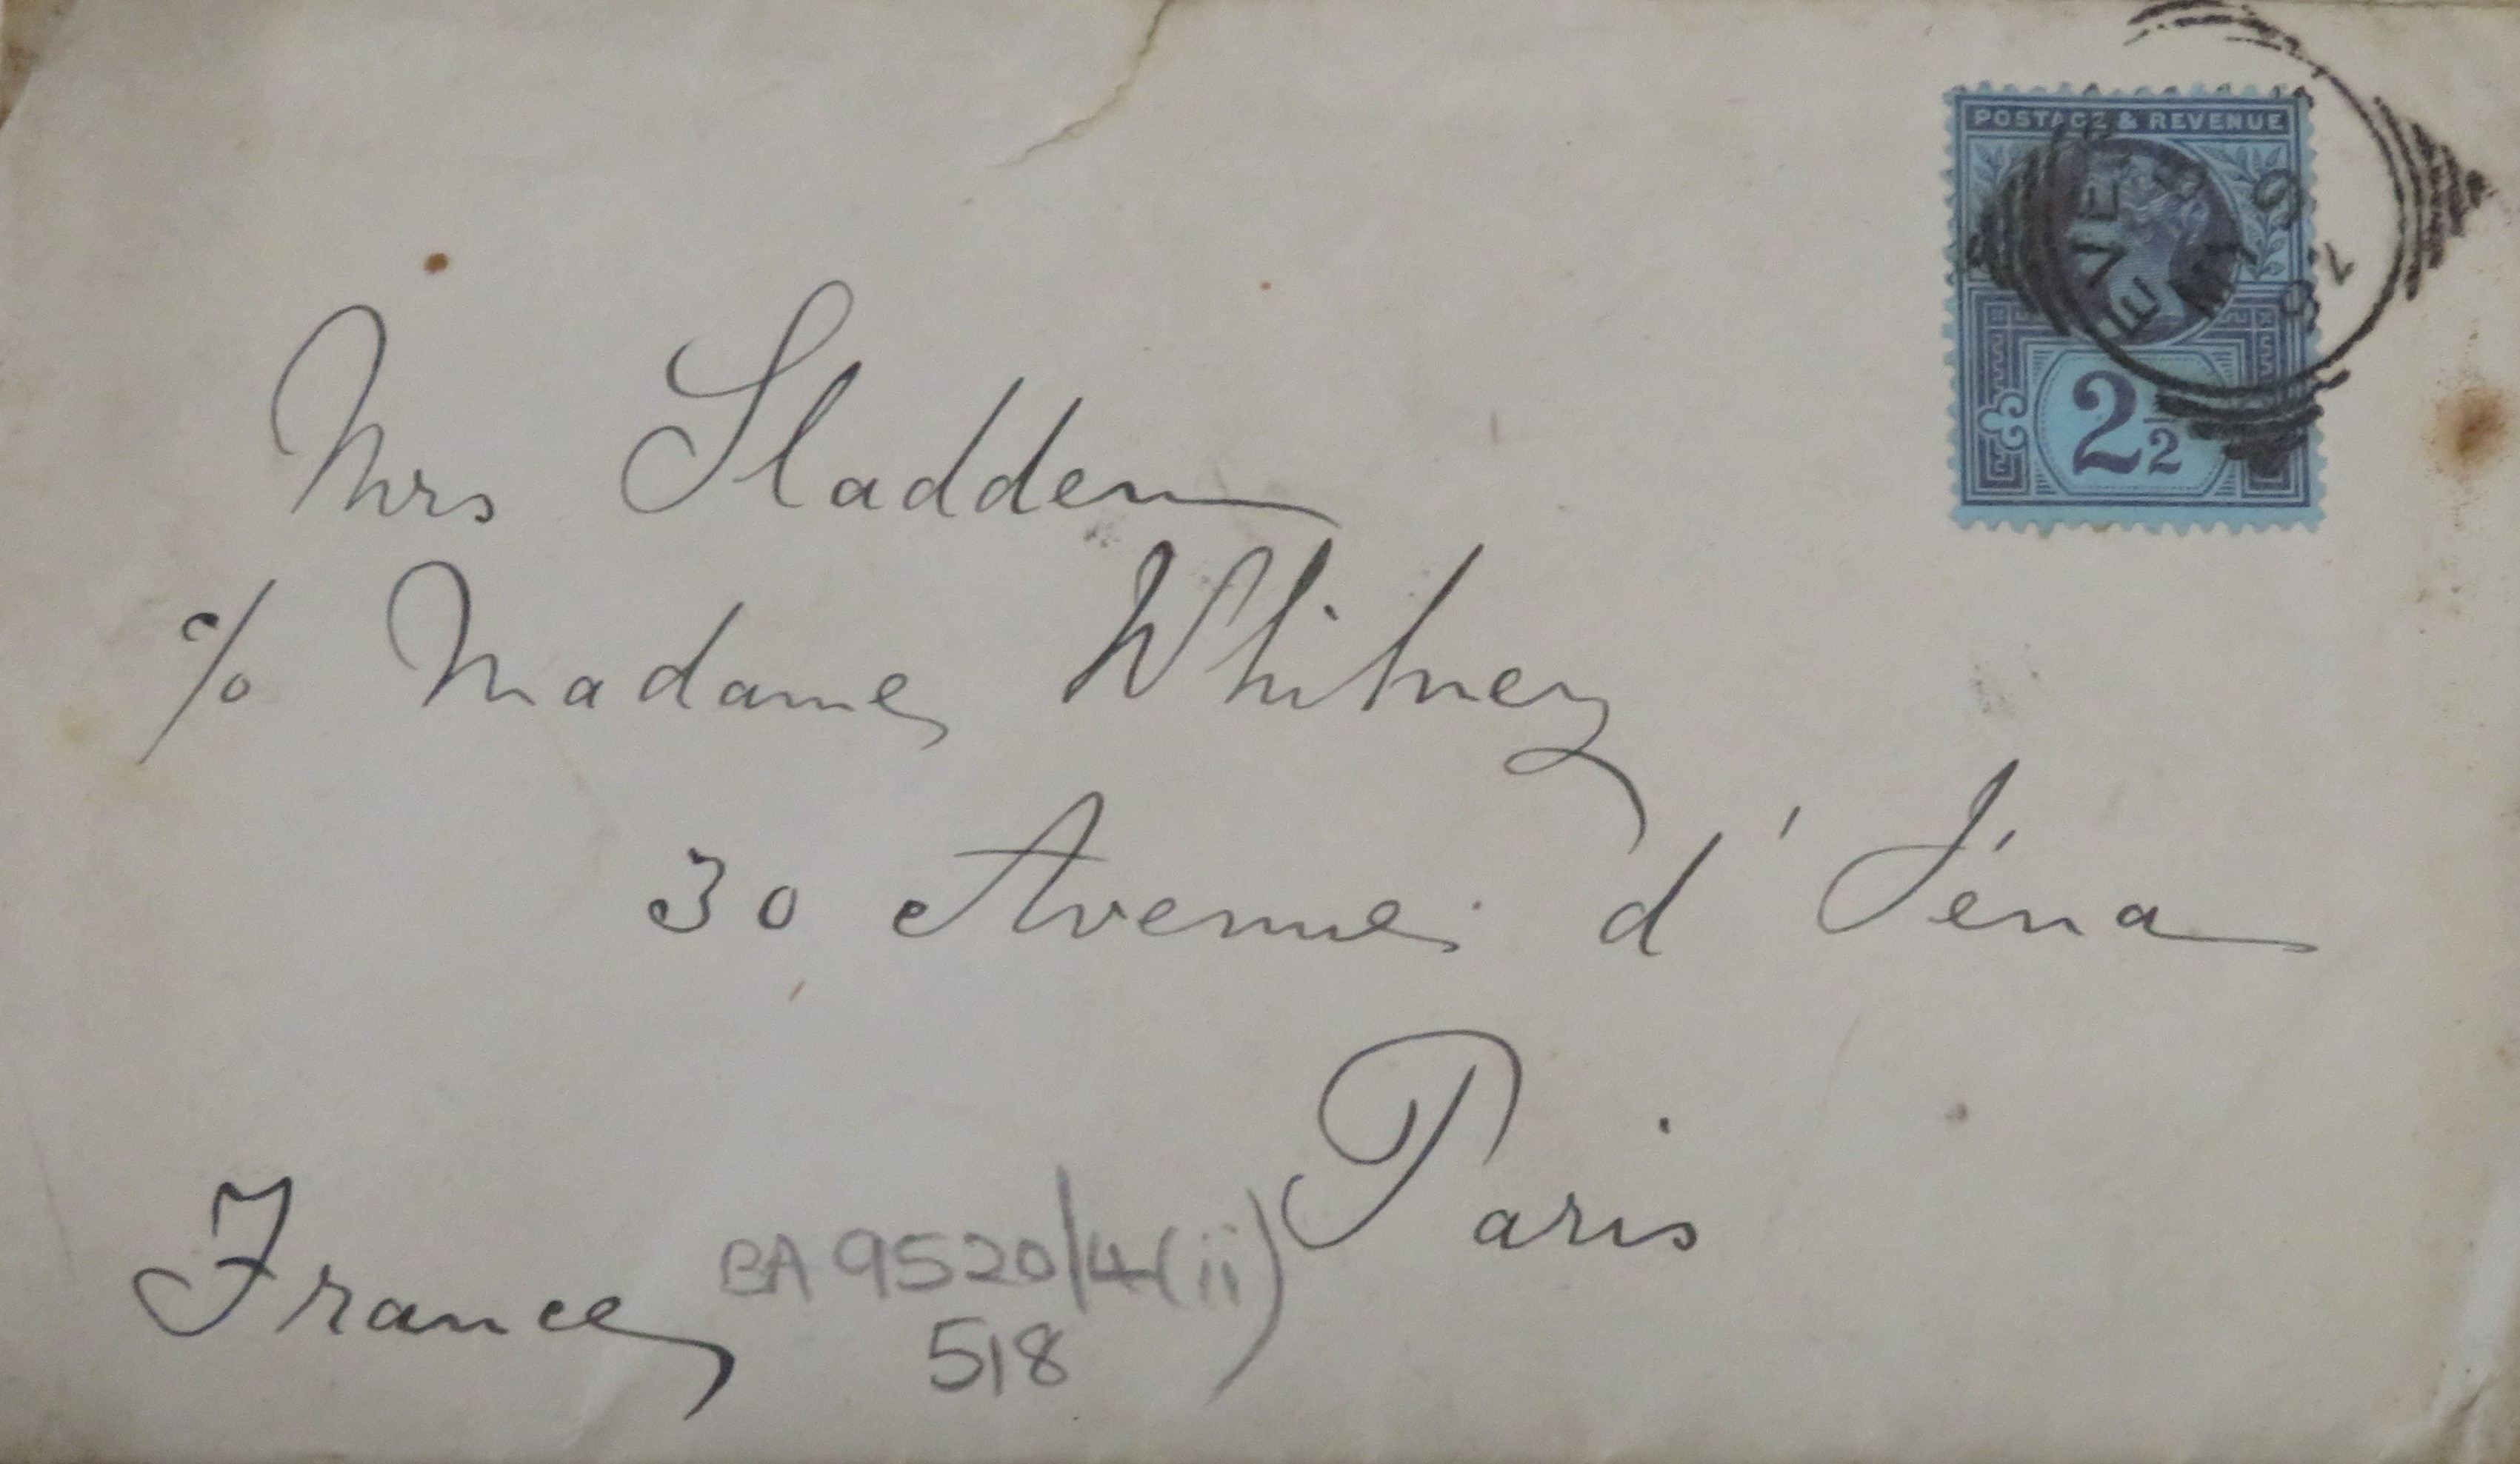 POSTAGE & REVENUE
EVE
MY 9
92
2½
Mrs Sladden
c/o Madame Whitney
30 Avenue d'Iéna
Paris
France
BA 9520/4(ii)
518